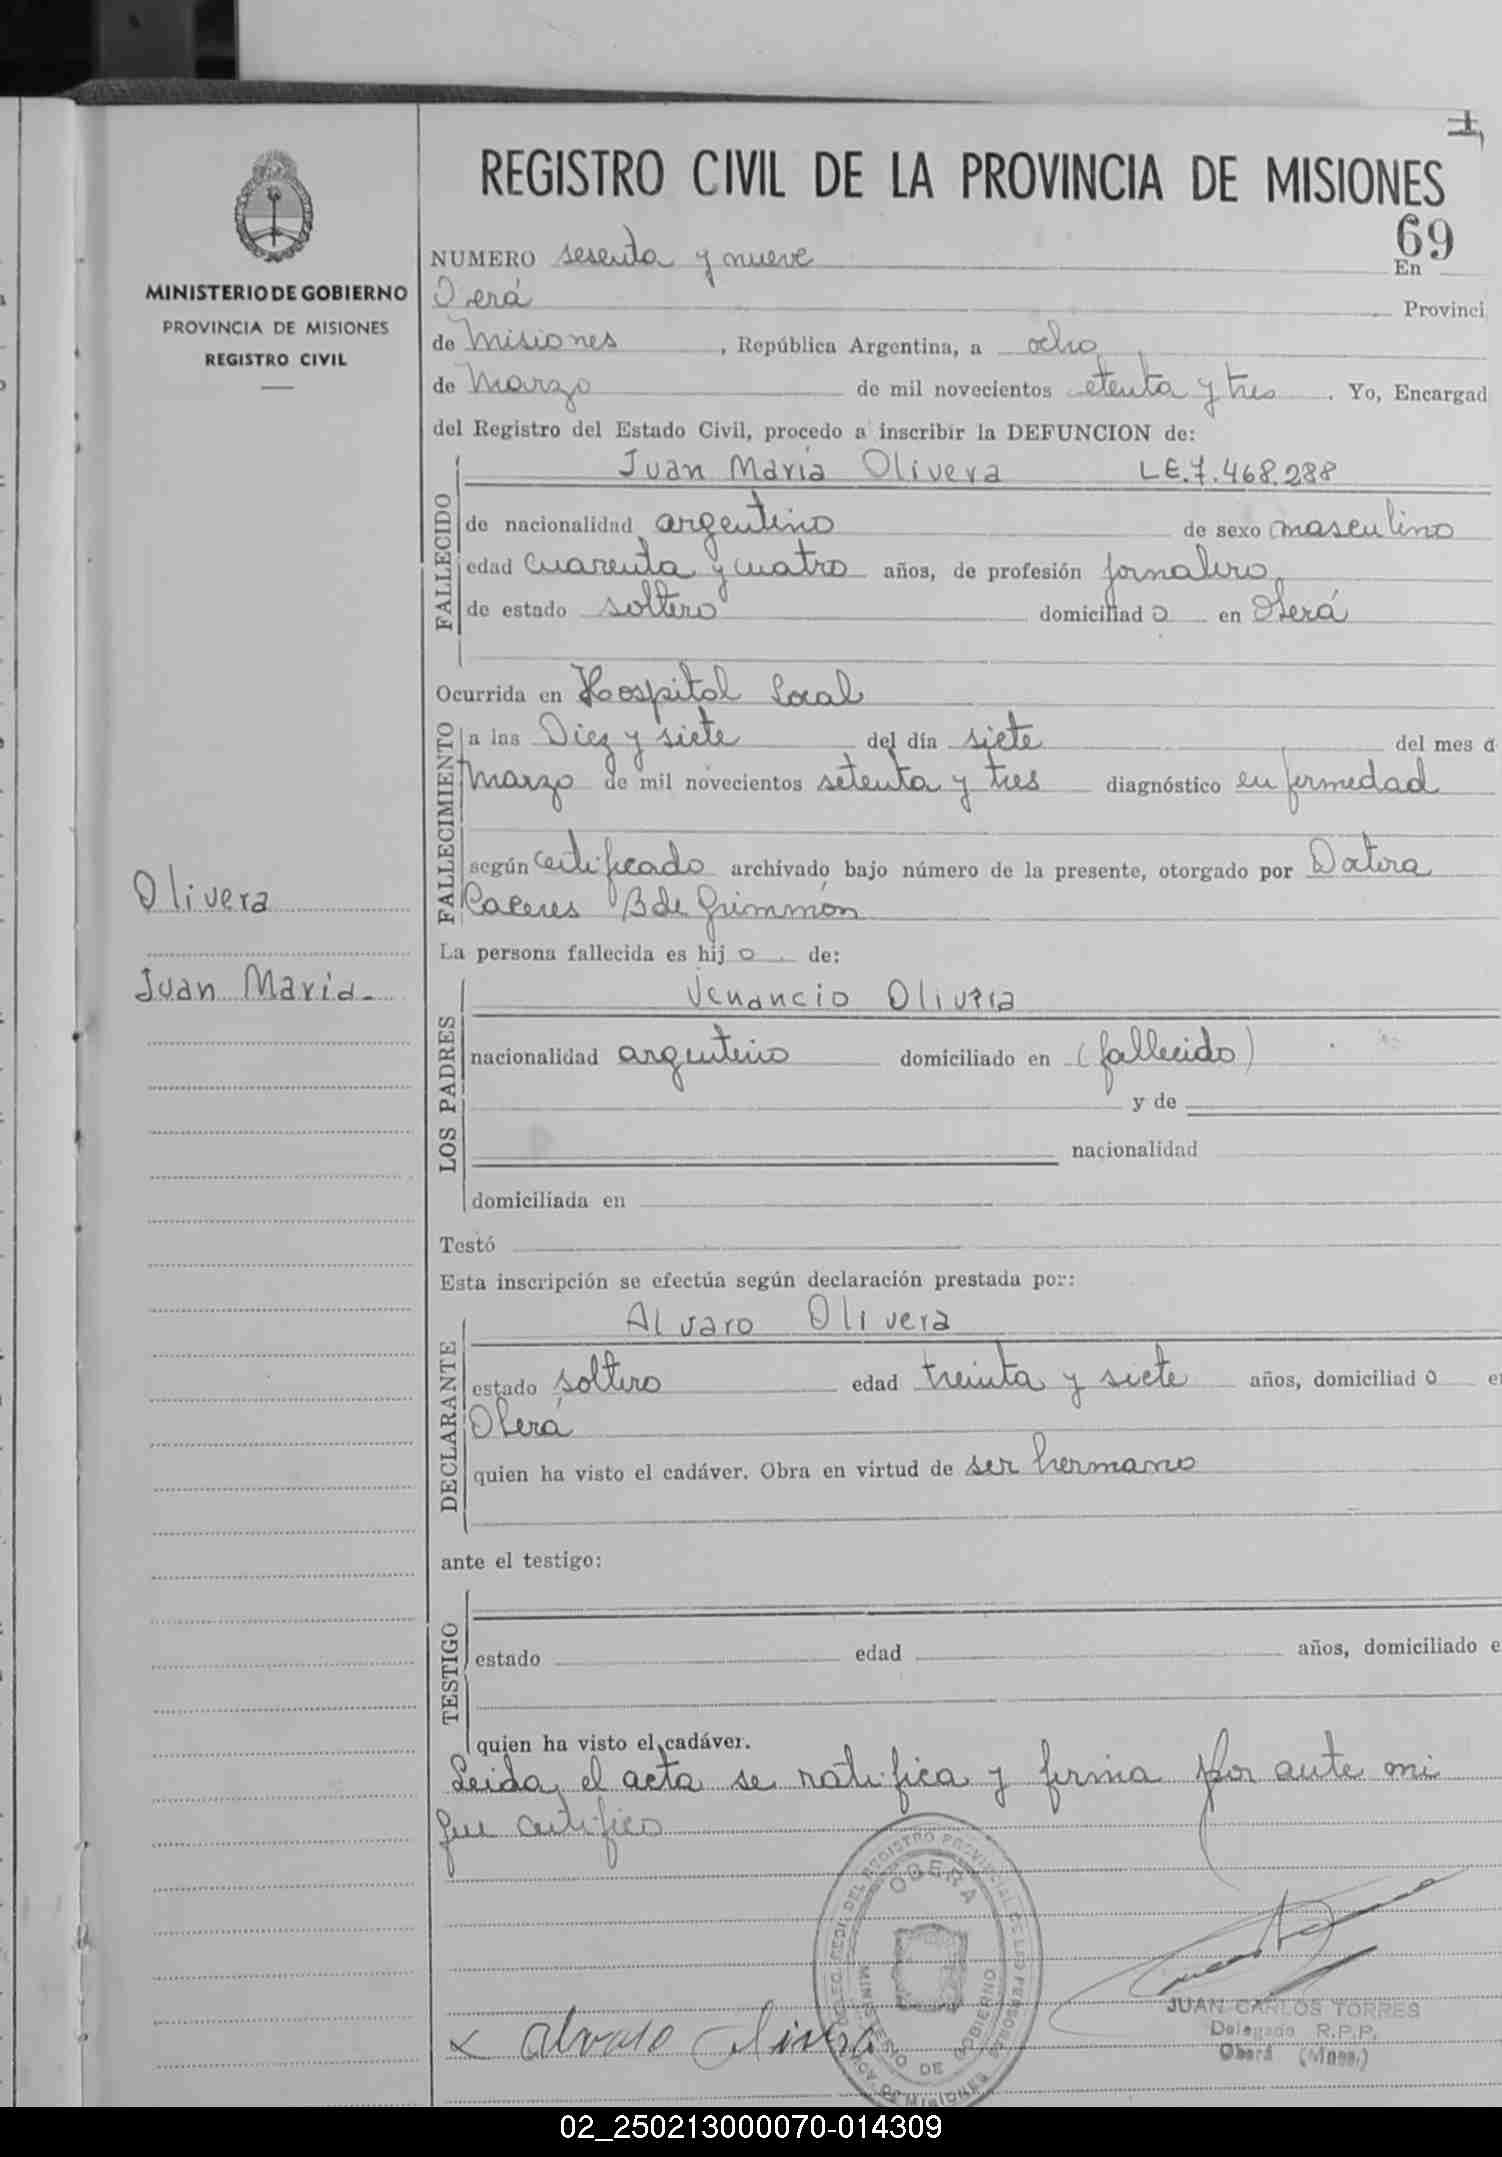 REGISTRO CIVIL DE LA PROVINCIA DE MISIONES
69
MINISTERIO DE GOBIERNO
PROVINCIA DE MISIONES
REGISTRO CIVIL
NUMERO sesenta y nueve En
Oberá Provinci
de Misiones, República Argentina, a ocho
de Marzo de mil novecientos setenta y tres. Yo, Encargad
del Registro del Estado Civil, procedo a inscribir la DEFUNCION de:
Juan Maria Olivera LE.7.468.288
FALLECIDO
de nacionalidad argentino de sexo masculino
edad cuarenta y cuatro años, de profesión jornalero
de estado soltero domiciliad o en Oberá
Ocurrida en Hospital Local
FALLECIMIENTO
a las Diez y siete del día siete del mes d
Marzo de mil novecientos setenta y tres diagnóstico enfermedad
según certificado archivado bajo número de la presente, otorgado por Doctora
Caceres B de Grimmon
Olivera
Juan Maria-
La persona fallecida es hij o de:
LOS PADRES
Venancio Olivera
nacionalidad argentino domiciliado en (fallecido)
y de
nacionalidad
domiciliada en
Testó
Esta inscripción se efectúa según declaración prestada por:
DECLARANTE
Alvaro Olivera
estado soltero edad treinta y siete años, domiciliad o e
Oberá
quien ha visto el cadáver. Obra en virtud de ser hermano
ante el testigo:
TESTIGO
estado edad años, domiciliado e
quien ha visto el cadáver.
Leida el acta se ratifica y firma por ante mi
que certifico
OBERA
MINISTERIO DE GOBIERNO
JUAN CARLOS TORRES
Delegado R.P.P.
Oberá (Mnes.)
x Alvaro Olivera
02_250213000070-014309